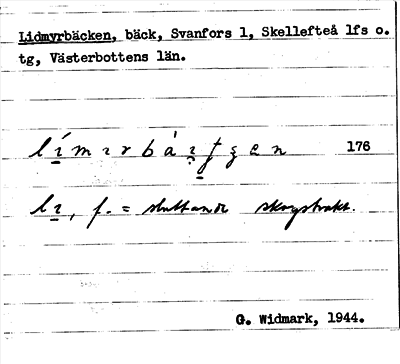 Lidmyrbäcken, bäck, Svanfors 1, Skellefteå lfs o.
tg, Västerbottens län.
176
f. = sluttande skogstrakt.
G. Widmark, 1944.